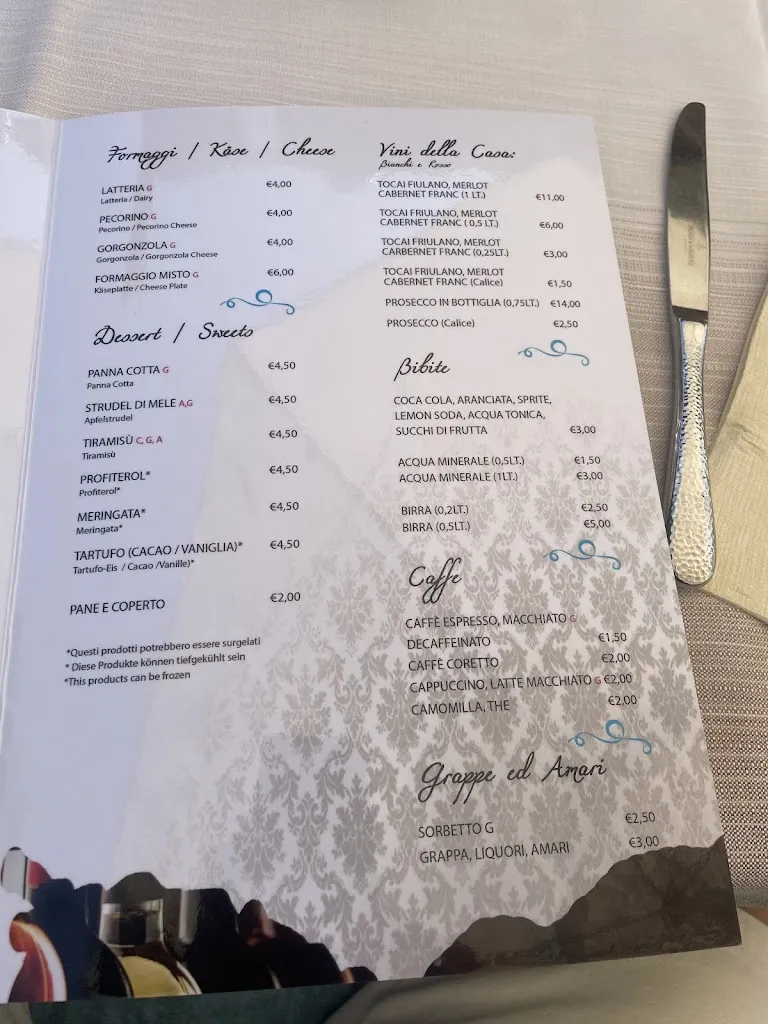 Formaggi / Käse / Cheese
LATTERIA G €4,00
Latteria / Dairy
PECORINO G €4,00
Pecorino / Pecorino Cheese
GORGONZOLA G €4,00
Gorgonzola / Gorgonzola Cheese
FORMAGGIO MISTO G €6,00
Käseplatte / Cheese Plate
Dessert / Sweets
PANNA COTTA G €4,50
Panna Cotta
STRUDEL DI MELE A,G €4,50
Apfelstrudel
TIRAMISÙ C, G, A €4,50
Tiramisù
PROFITEROL* €4,50
Profiterol*
MERINGATA* €4,50
Meringata*
TARTUFO (CACAO / VANIGLIA)* €4,50
Tartufo-Eis / Cacao /Vanille)*
PANE E COPERTO €2,00
*Questi prodotti potrebbero essere surgelati
* Diese Produkte können tiefgekühlt sein
*This products can be frozen
Vini della Casa:
Bianchi e Rosso
TOCAI FIULANO, MERLOT
CABERNET FRANC (1 LT.) €11,00
TOCAI FRIULANO, MERLOT
CABERNET FRANC ( 0,5 LT.) €6,00
TOCAI FRIULANO, MERLOT
CARBERNET FRANC (0,25LT.) €3,00
TOCAI FRIULANO, MERLOT
CABERNET FRANC (Calice) €1,50
PROSECCO IN BOTTIGLIA (0,75LT.) €14,00
PROSECCO (Calice) €2,50
Bibite
COCA COLA, ARANCIATA, SPRITE,
LEMON SODA, ACQUA TONICA,
SUCCHI DI FRUTTA €3,00
ACQUA MINERALE (0,5LT.) €1,50
ACQUA MINERALE (1LT.) €3,00
BIRRA (0,2LT.) €2,50
BIRRA (0,5LT.) €5,00
Caffe
CAFFÈ ESPRESSO, MACCHIATO G
DECAFFEINATO €1,50
CAFFÈ CORETTO €2,00
CAPPUCCINO, LATTE MACCHIATO G €2,00
CAMOMILLA, THE €2,00
Grappe ed Amari
SORBETTO G €2,50
GRAPPA, LIQUORI, AMARI €3,00